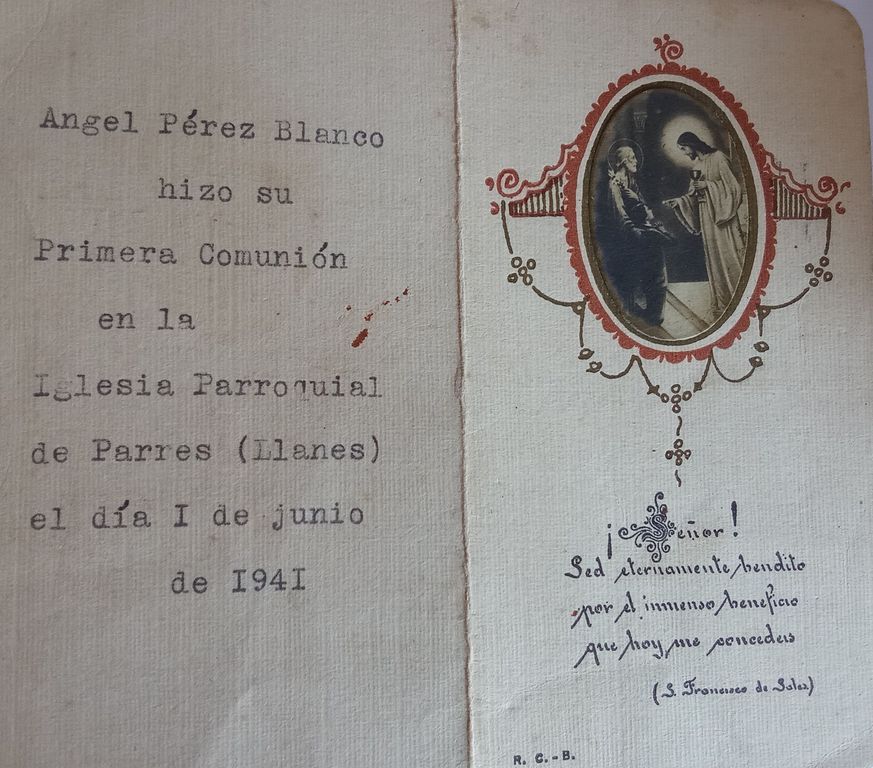 Angel Pérez Blanco
hizo su
Primera Comunión
en la
Iglesia Parroquial
de Parres (Llanes)
el día I de junio
de I94I
¡Señor!
Sed eternamente bendito
por el inmenso beneficio
que hoy me concedeis
(S. Francisco de Sales)
R. C. - B.